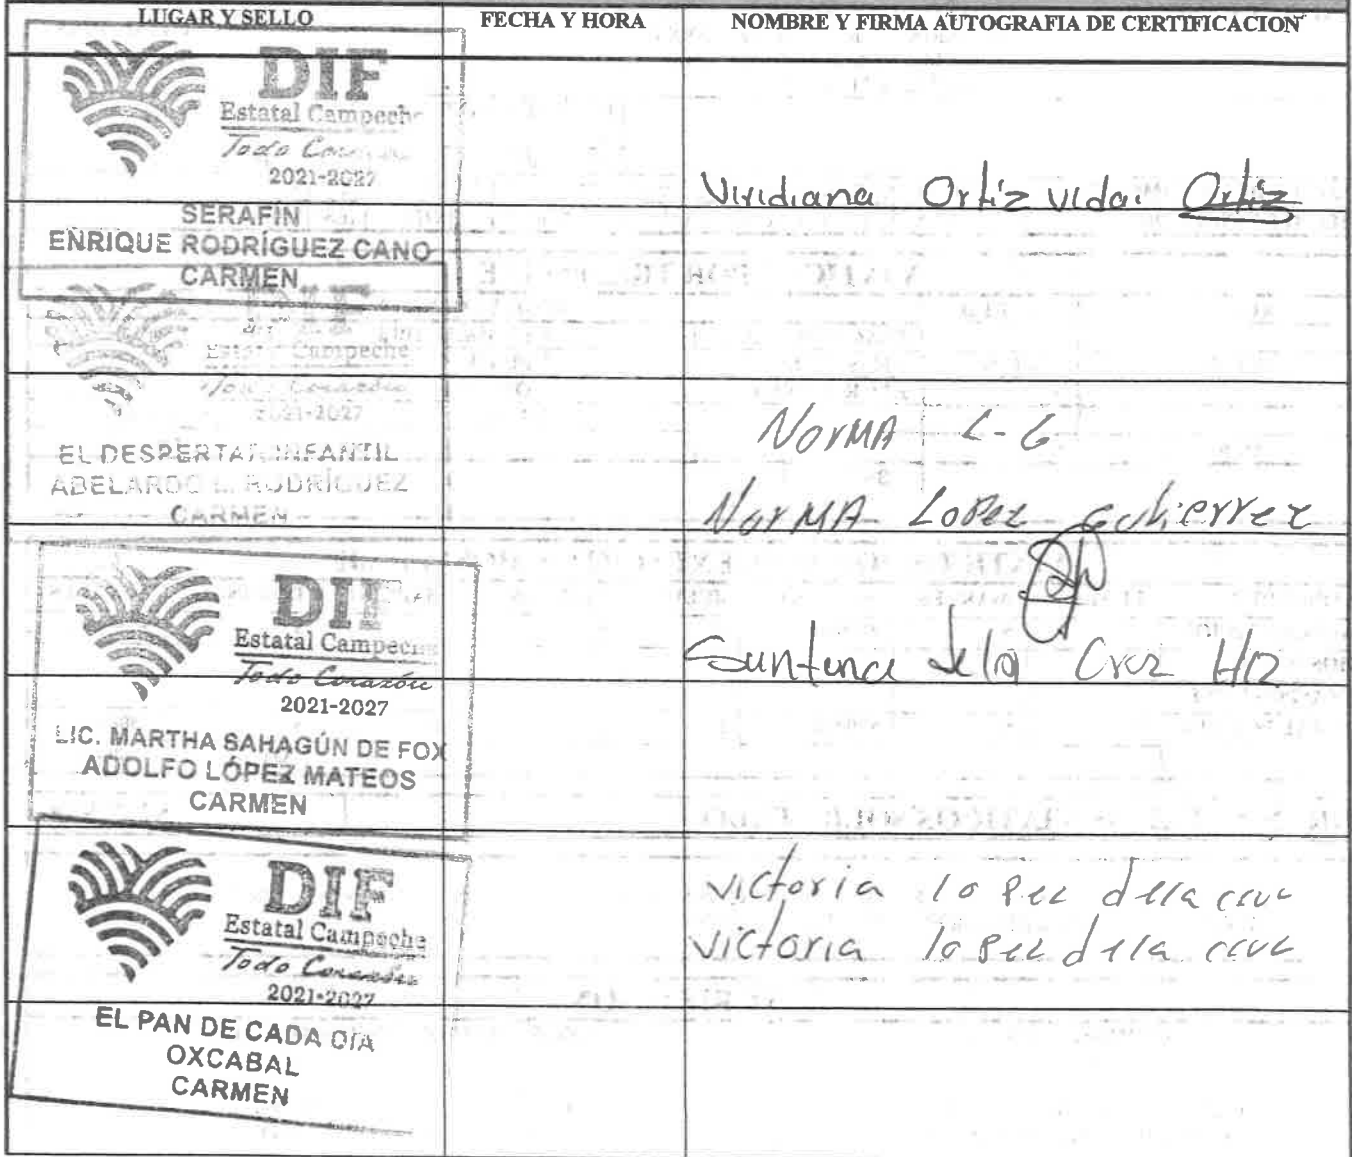 LUGAR Y SELLO
FECHA Y HORA
NOMBRE Y FIRMA AUTOGRAFIA DE CERTIFICACION
DIF
Estatal Campeche
Todo Corazón
2021-2027
SERAFIN
ENRIQUE RODRÍGUEZ CANO
CARMEN
Viridiana Ortiz Vidal Ortiz
DIF
Estatal Campeche
Todo Corazón
2021-2027
EL DESPERTAR INFANTIL
ABELARDO L. RODRÍGUEZ
CARMEN
NorMA L-G
NorMA LoPez Gutierrez
DIF
Estatal Campeche
Todo Corazón
2021-2027
LIC. MARTHA SAHAGÚN DE FOX
ADOLFO LÓPEZ MATEOS
CARMEN
de la Cruz Hdz
DIF
Estatal Campeche
Todo Corazón
2021-2027
EL PAN DE CADA DÍA
OXCABAL
CARMEN
victoria lo Pez dela cruz
victoria lo Pez dela cruz